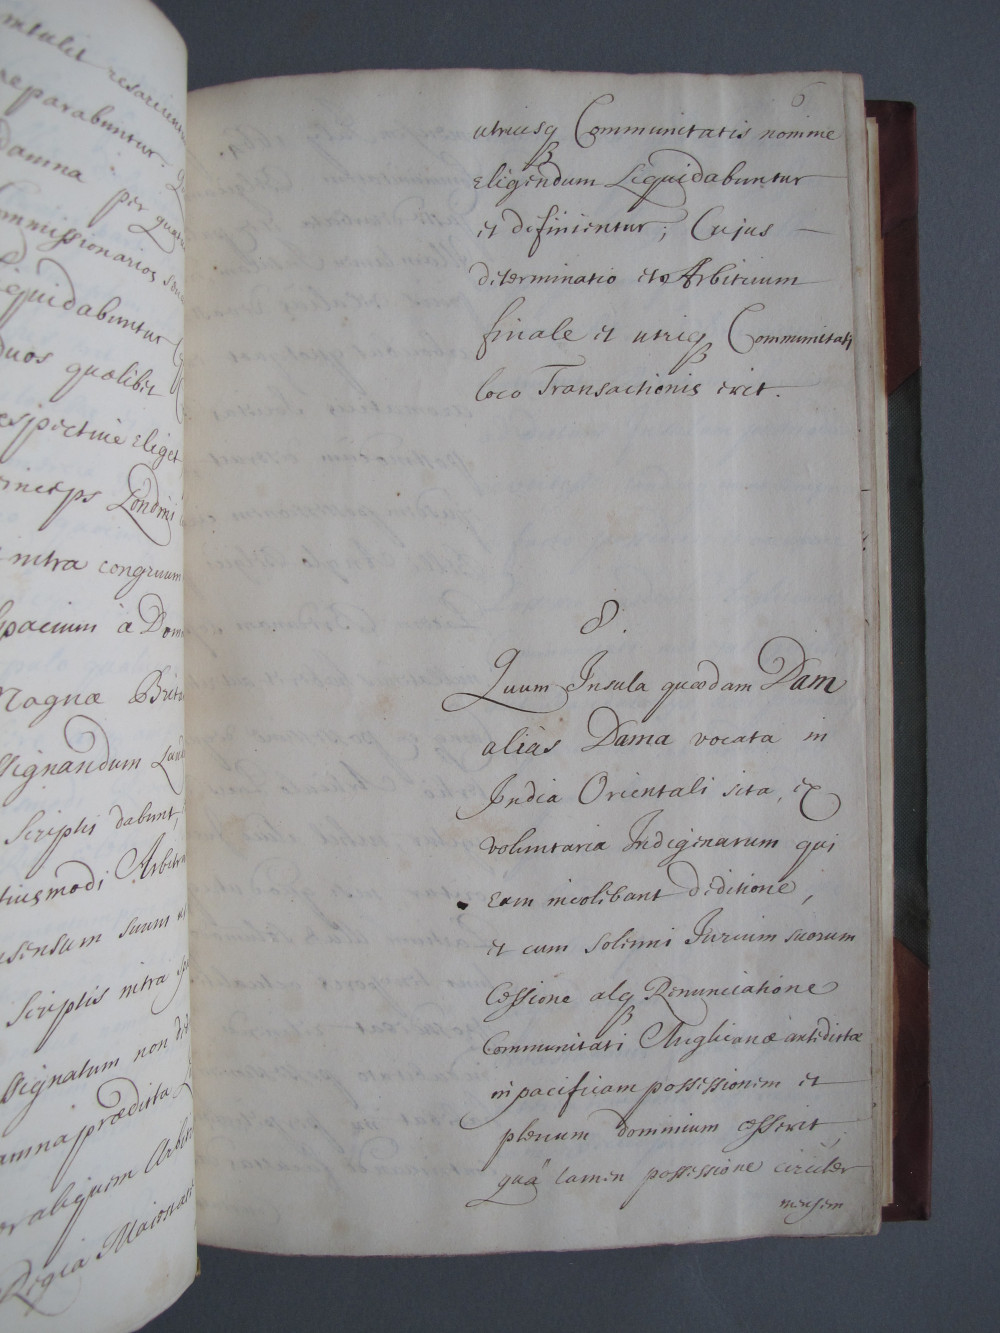 mtulit resarcien
reparabuntur.
Damna per quatuor
ommissionarios
iquidabuntur
Duos quælibet
espective Eliget
rinceps Londini
intra congruum
spacium à Dom
Magnæ Brita
ssignandum
Scriptis dabunt,
ejusmodi Arbitr
nsensum suum
Scriptis intra
ssignatum non
amna prædicta
er aliquem Arbitr
Regia Maiestate
6
utriusq Communitatis nomine
Eligendum Liquidabuntur
et definientur; Cujus
determinatio et Arbitrium
finale et utriq Communitati
loco Transactionis erit.
8.
Quum Insula quædam Dam
alias Dama vocata in
India Orientali sita, ex
voluntaria Indigenarum qui
Eam incolebant deditione,
et cum Solenni Jurium suorum
Cessione atq Renunciatione
Communitati Anglicanæ antedictæ
in pacificam possessionem et
plenum dominium cesserit,
quâ tamen possessione circiter
mensem